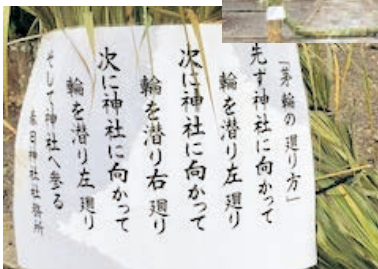 「茅輪の廻り方」
先ず神社に向かって
輪を潜り左廻り
次に神社に向かって
輪を潜り右廻り
次に神社に向かって
輪を潜り左廻り
そして神社へ参る
春日神社社務所